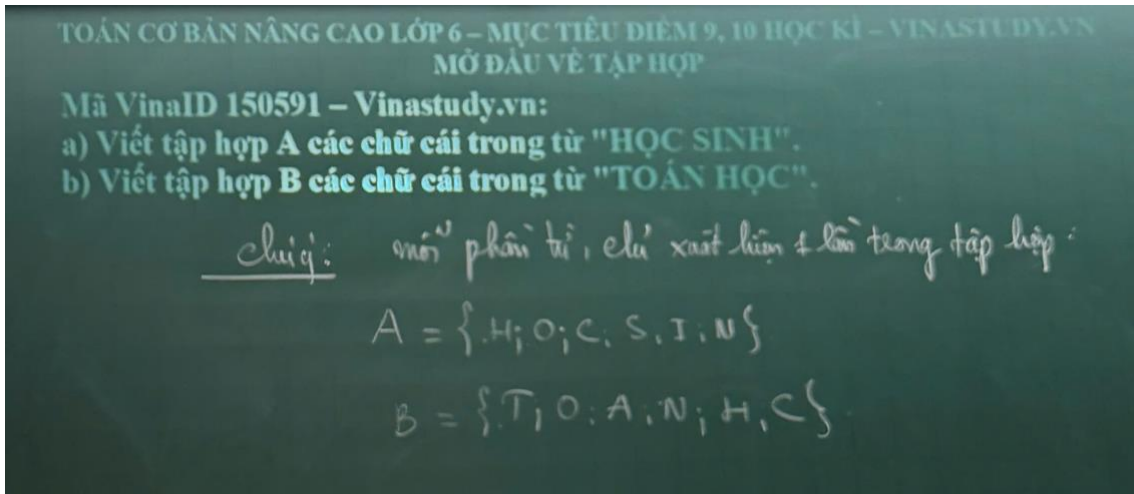 TOÁN CƠ BẢN NÂNG CAO LỚP 6 – MỤC TIÊU ĐIỂM 9, 10 HỌC KÌ – VINASTUDY.VN
MỞ ĐẦU VỀ TẬP HỢP
Mã VinaID 150591 – Vinastudy.vn:
a) Viết tập hợp A các chữ cái trong từ "HỌC SINH".
b) Viết tập hợp B các chữ cái trong từ "TOÁN HỌC".
chú ý: mỗi phần tử, chỉ xuất hiện 1 lần trong tập hợp.
A = {H; O; C; S, I, N}
B = {T; O; A, N; H, C}